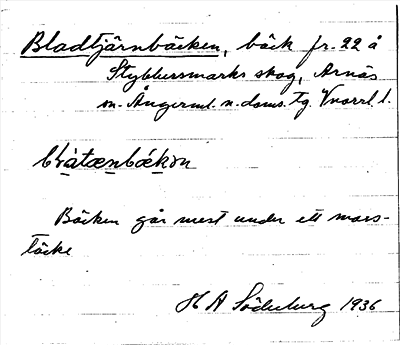 Bladtjärnbäcken, bäck fr. 22 å
Stybbersmarks skog, Arnäs
m. Ångerml. n. doms. tg. Vnorrl. l.
Bäcken går mest under ett moss-
täcke
H A Söderberg 1936